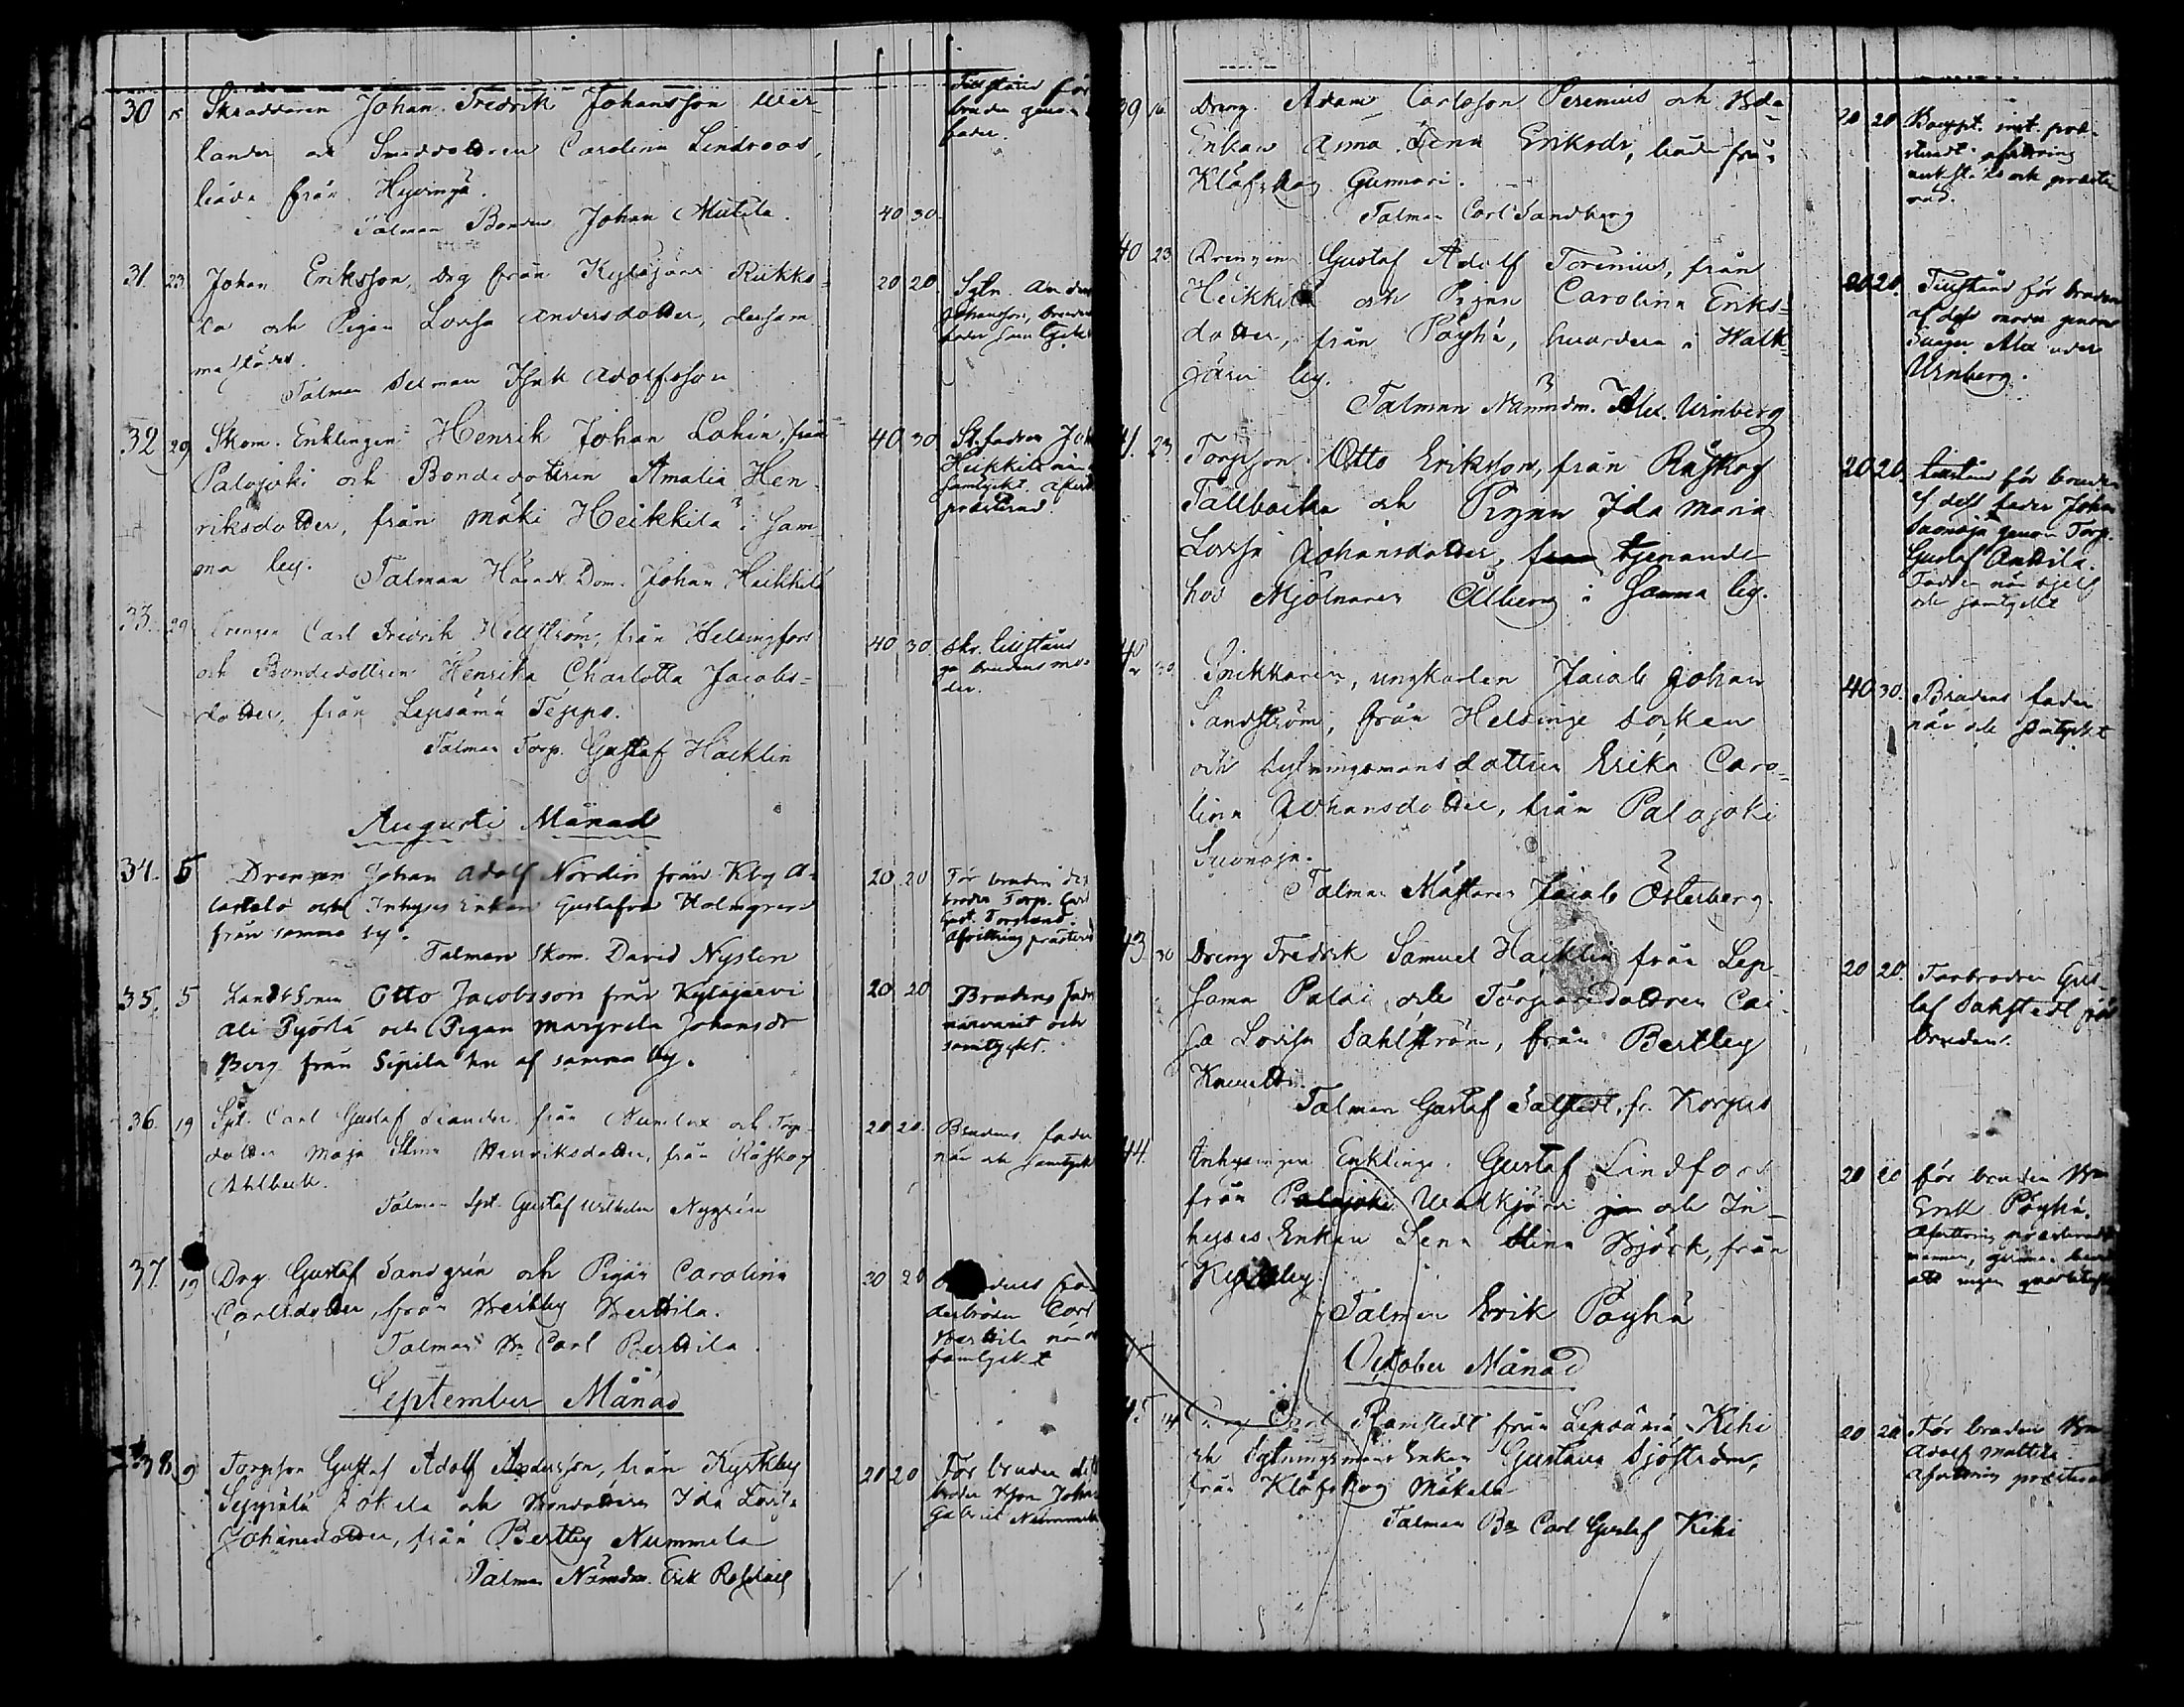 30 15 Skräddaren Johan Fredrik Johansson Wer-
lander och Smeddottren Carolina Lindroos,
båda från Hyvinge.
Talman Bonden Johan Mutila. 40 30
Tillstånd för
bruden genom
fader.
31. 23. Johan Eriksson, drg från Kytäjärvi Kukko-
la och Pigan Lovisa Andersdotter, dersam-
mastädes. 20 20
Talman Selman Isak Adolfsson
Johansson, brudens
fader samtyckt
32 29 Skom. Enklingen Henrik Johan Lohin, från
Palojoki och Bondedottren Amalia Hen-
riksdotter, från Mäki Heikkilä i sam-
ma by. 40 30
Talman Häradt Dom. Johan Heikkilä
St.fadren Joh
Heikkilä när
samtyckt. Afvittr
præsterad.
33. 29 Drengen Carl Fredrik Hellström, från Helsingfors
och Bondedottren Henrika Charlotta Jacobs-
dotter, från Lepsämä Teppo. 40 30
Talman Torp. Gustaf Häcklin
Skr. tillstånd
ge brudens mo-
der.
Augusti Månad
34. 5 Drengen Johan Adolf Nordin från Kby A-
lastalo och Inhyses Enkan Gustafva Holmgren
från samma by. 20 20
Talman Skom. David Nyslen
För bruden des
broder Torp. Carl
Gust. Forslund
Afvittring præsterad
35. 5 Landb.sonen Otto Jacobsson från Kytäjärvi
Ali Pyörlä och Pigan Margreta Johansdr
Berg från Sipilä hn af samma by. 20 20
Brudens fader
närvarit och
samtyckt.
36. 19 Spt. Carl Gustaf Leander från Numlax och Torp-
dotter Maja Stina Henriksdotter, från Råskog
Ahlback. 20 20.
Talman Spt. Gustaf Wilhelm Nygrén
Brudens fader
när och samtyckt
37. 19 Drg. Gustaf Sandgrén och Pigan Carolina
Carlsdotter, från Bertby Bertila. 20 20
Talman Bn Carl Bertila.
fa-
derbroder Carl
Bertila när o
samtyckt
September Månad
38 9 Torpson Gustaf Adolf Andersson, från Kyrkby
Seppälä Jokela och Bondottren Ida Lovisa
Johansdotter, från Bertby Nummela 20 20
Talman Nämdm. Erik
För bruden dess
broder Bson Johan
Gabriel Nummela
39 16 Dreng. Adam Carlsson Perenius och Bde
Enkan Anna Lena Eriksdr, båda från
Klöfskog Gunnari. 20 20
Talman Carl Sandberg
40 23 Drengen Gustaf Adolf Torenius, från
Heikkilä och Pigan Carolina Eriks-
dotter, från Pöyhä, hvardera i Walk-
järvi by. 20 20.
Talman Nämndm. Alex. Urnberg
Tillstånd för bruden
af dess moder genom
Svåger Alexander
Urnberg.
41. 23. Torpson Otto Eriksson, från Råskog
Tallbacka och Pigan Ida Maria
Lovisa Johansdotter, från tjenande
hos Mjölnaren Ahlberg i samma by. 20 20
Tillstånd för bruden
af dess fader Johan
Suonoja genom Torp.
Gustaf Anttila.
Fadren när sjelf
och samtyckte
42 30 Snikkaren, ungkarlen Jacob Johan
Sandström, från Helsinge socken
och Sytningsmansdottren Erika Caro-
lina Johansdotter, från Palojoki
Suonoja. 40 30.
Talman Mästaren Jacob Österberg.
Brudens fader
när och samtyckt
43 30 Dreng Fredrik Samuel Hacklin från Lep-
säma Paloi och Torparedottren Cai-
sa Lovisa Sahlström, från Bertby
20 20.
Talman Gustaf Salstedt, fr. Korpus
Farbrodren Gus-
taf Sahlstedt för
bruden.
44. Inhysingen Enklinge. Gustaf Lindfors
från Palojoki Walkjärvi och In-
hyses Enkan Lena Stina Björk, från
Kyrkby. 20 20
Talman Erik Pöyhä
för bruden Bn
Erik Pöyhä.
October Månad
45 14 Carl Ramstedt från Lepsämä Kihi
och Sytningsmans Enkan Gustava Sjöström,
från Klöfskog Mäkelä 20 20
Talman Bn Carl Gustaf Kihi
För bruden Bn
Adolf Mattila
Afvittring præsterad